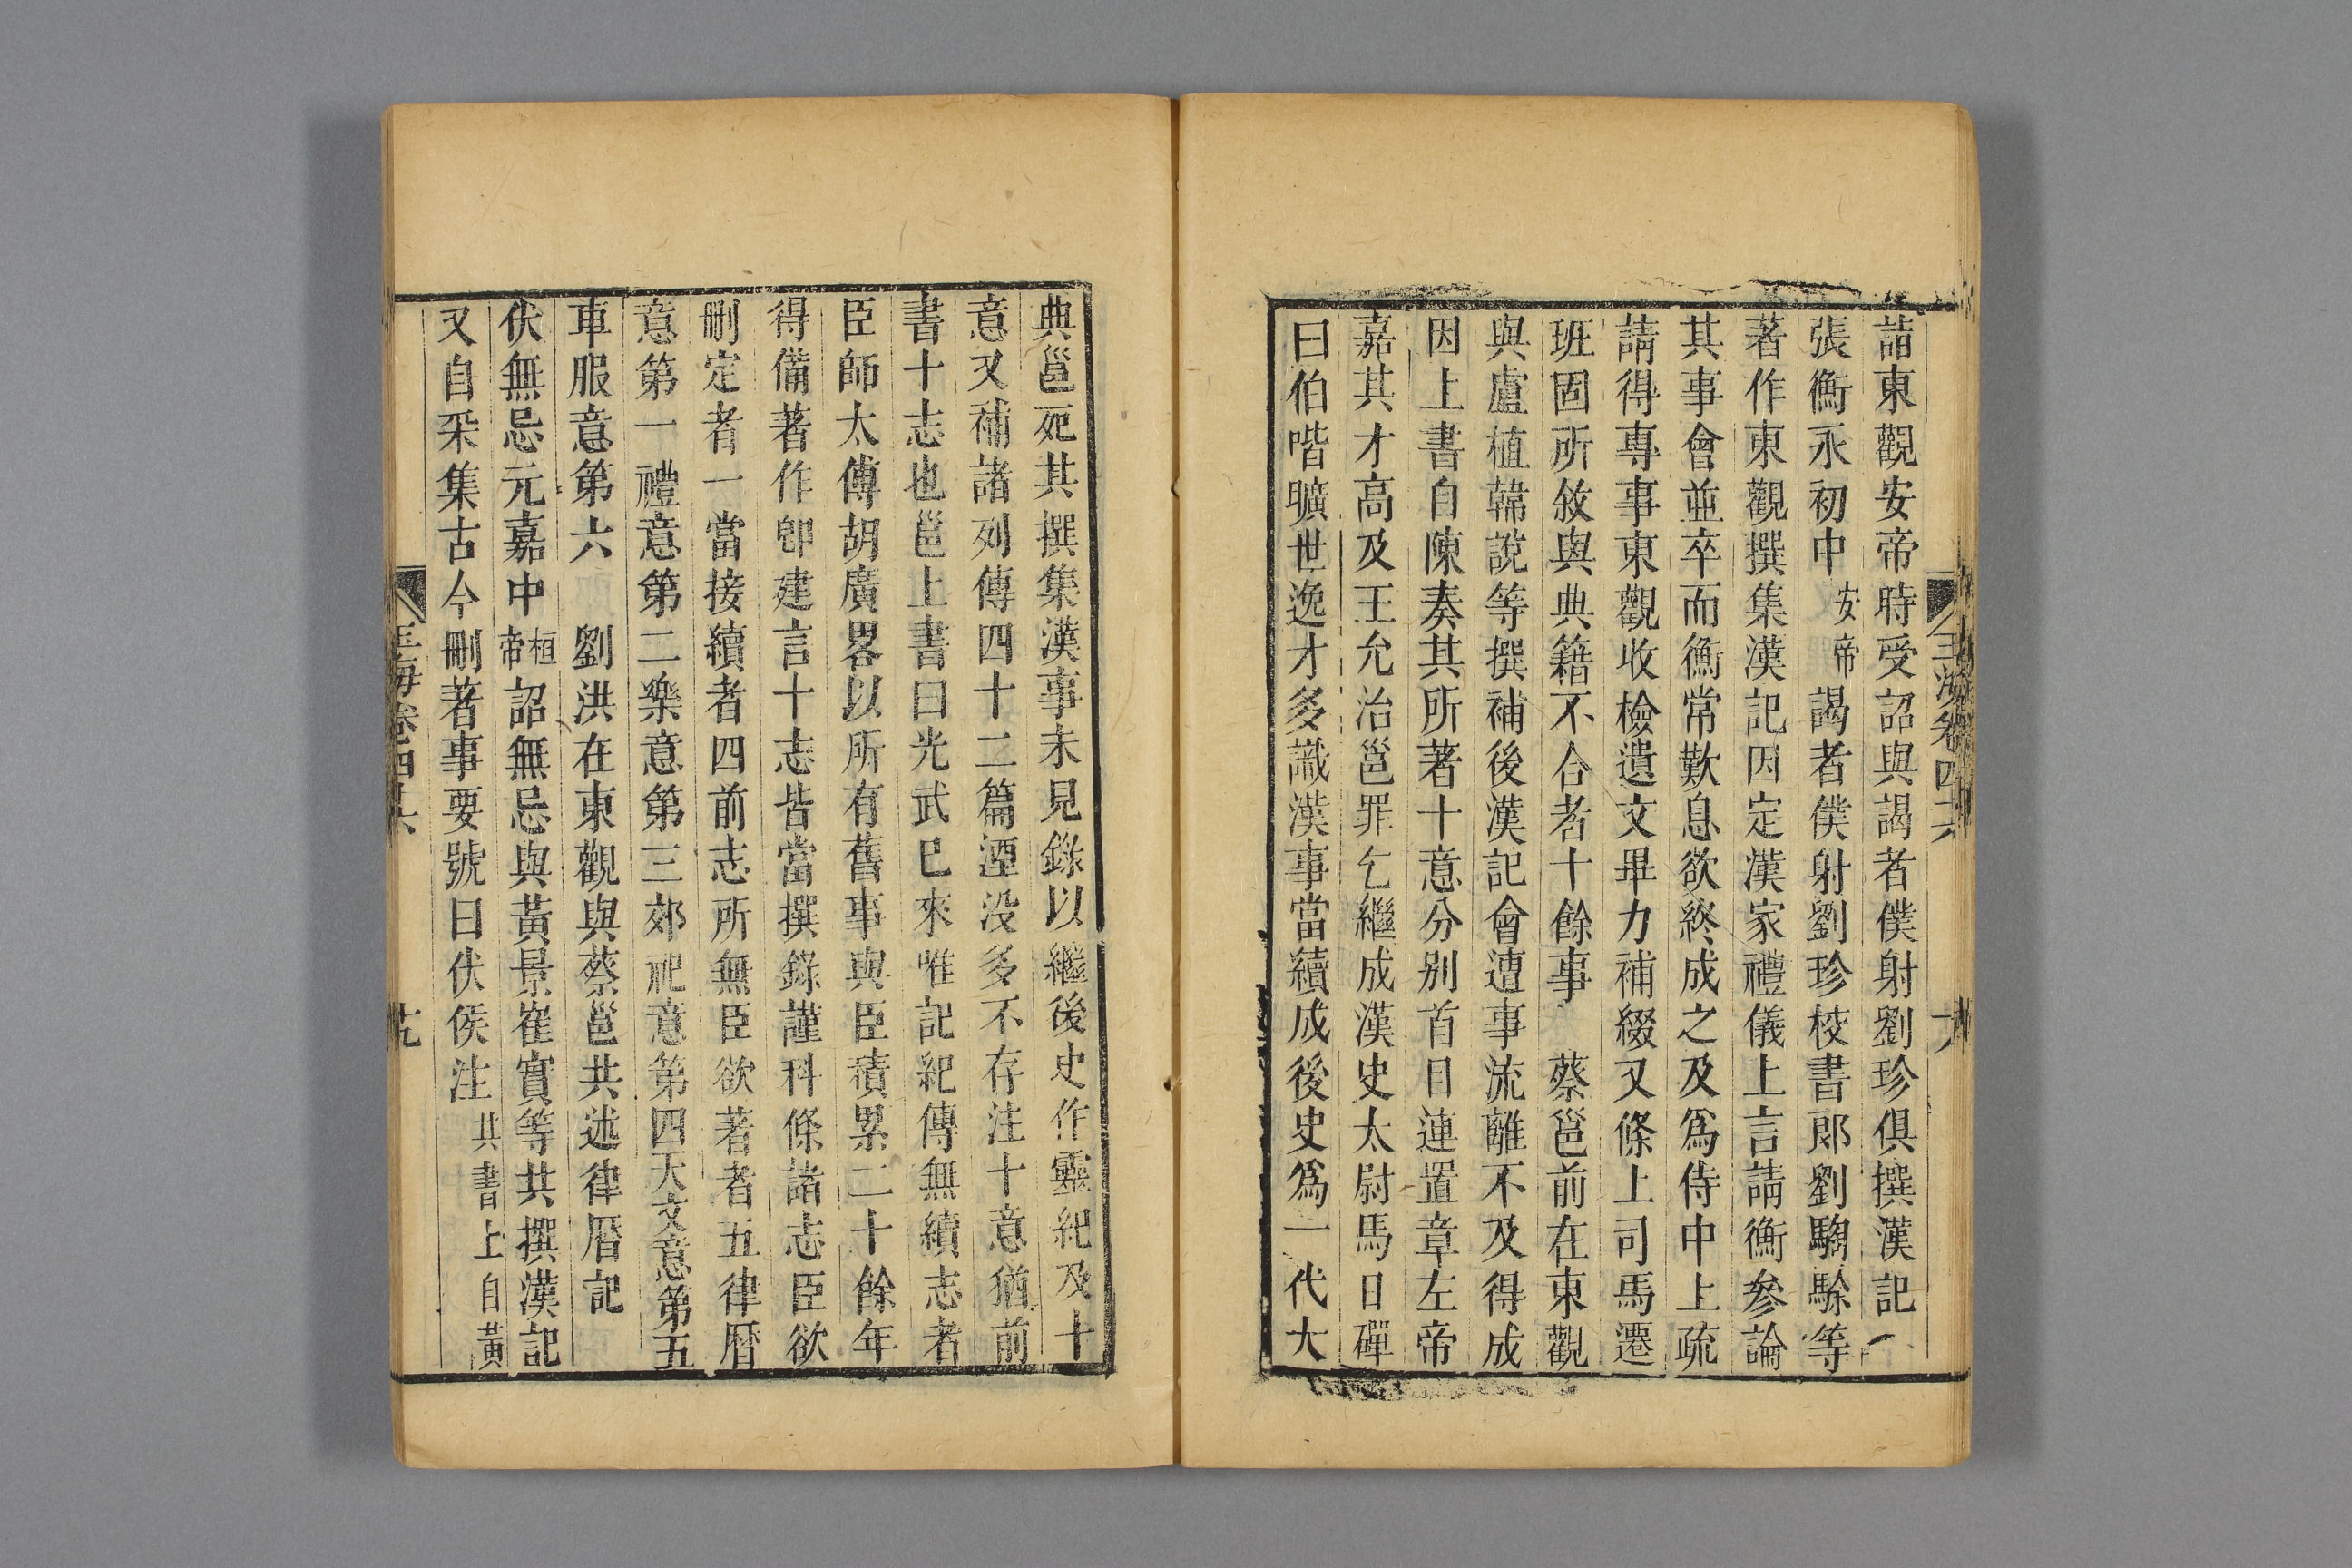 玉海卷四六
詣東觀安帝時受詔與謁者僕射劉珍俱撰漢記
張衡永初中安帝謁者僕射劉珍校書郎劉騊駼等
著作東觀撰集漢記因定漢家禮儀上言請衡參論
其事會並卒而衡常歎息欲終成之及爲侍中上疏
請得專事東觀收檢遺文畢力補綴又條上司馬遷
班固所敘與典籍不合者十餘事　蔡邕前在東觀
與盧植韓說等撰補後漢記會遭事流離不及得成
因上書自陳奏其所著十意分别首目連置章左帝
嘉其才高及王允治邕罪乞繼成漢史太尉馬日磾
曰伯喈曠世逸才多識漢事當續成後史爲一代大
典邕死其撰集漢事未見錄以繼後史作靈紀及十
意又補諸列傳四十二篇湮没多不存注十意猶前
書十志也邕上書曰光武已來唯記紀傳無續志者
臣師太傅胡廣畧以所有舊事與臣積累二十餘年
得備著作郎建言十志皆當撰錄謹科條諸志臣欲
刪定者一當接續者四前志所無臣欲著者五律曆
意第一禮意第二樂意第三郊祀意第四天文意第五
車服意第六　劉洪在東觀與蔡邕共述律曆記
伏無忌元嘉中桓帝詔無忌與黃景崔寔等共撰漢記
又自采集古今刪著事要號曰伏侯注其書上自黃
玉海卷四六